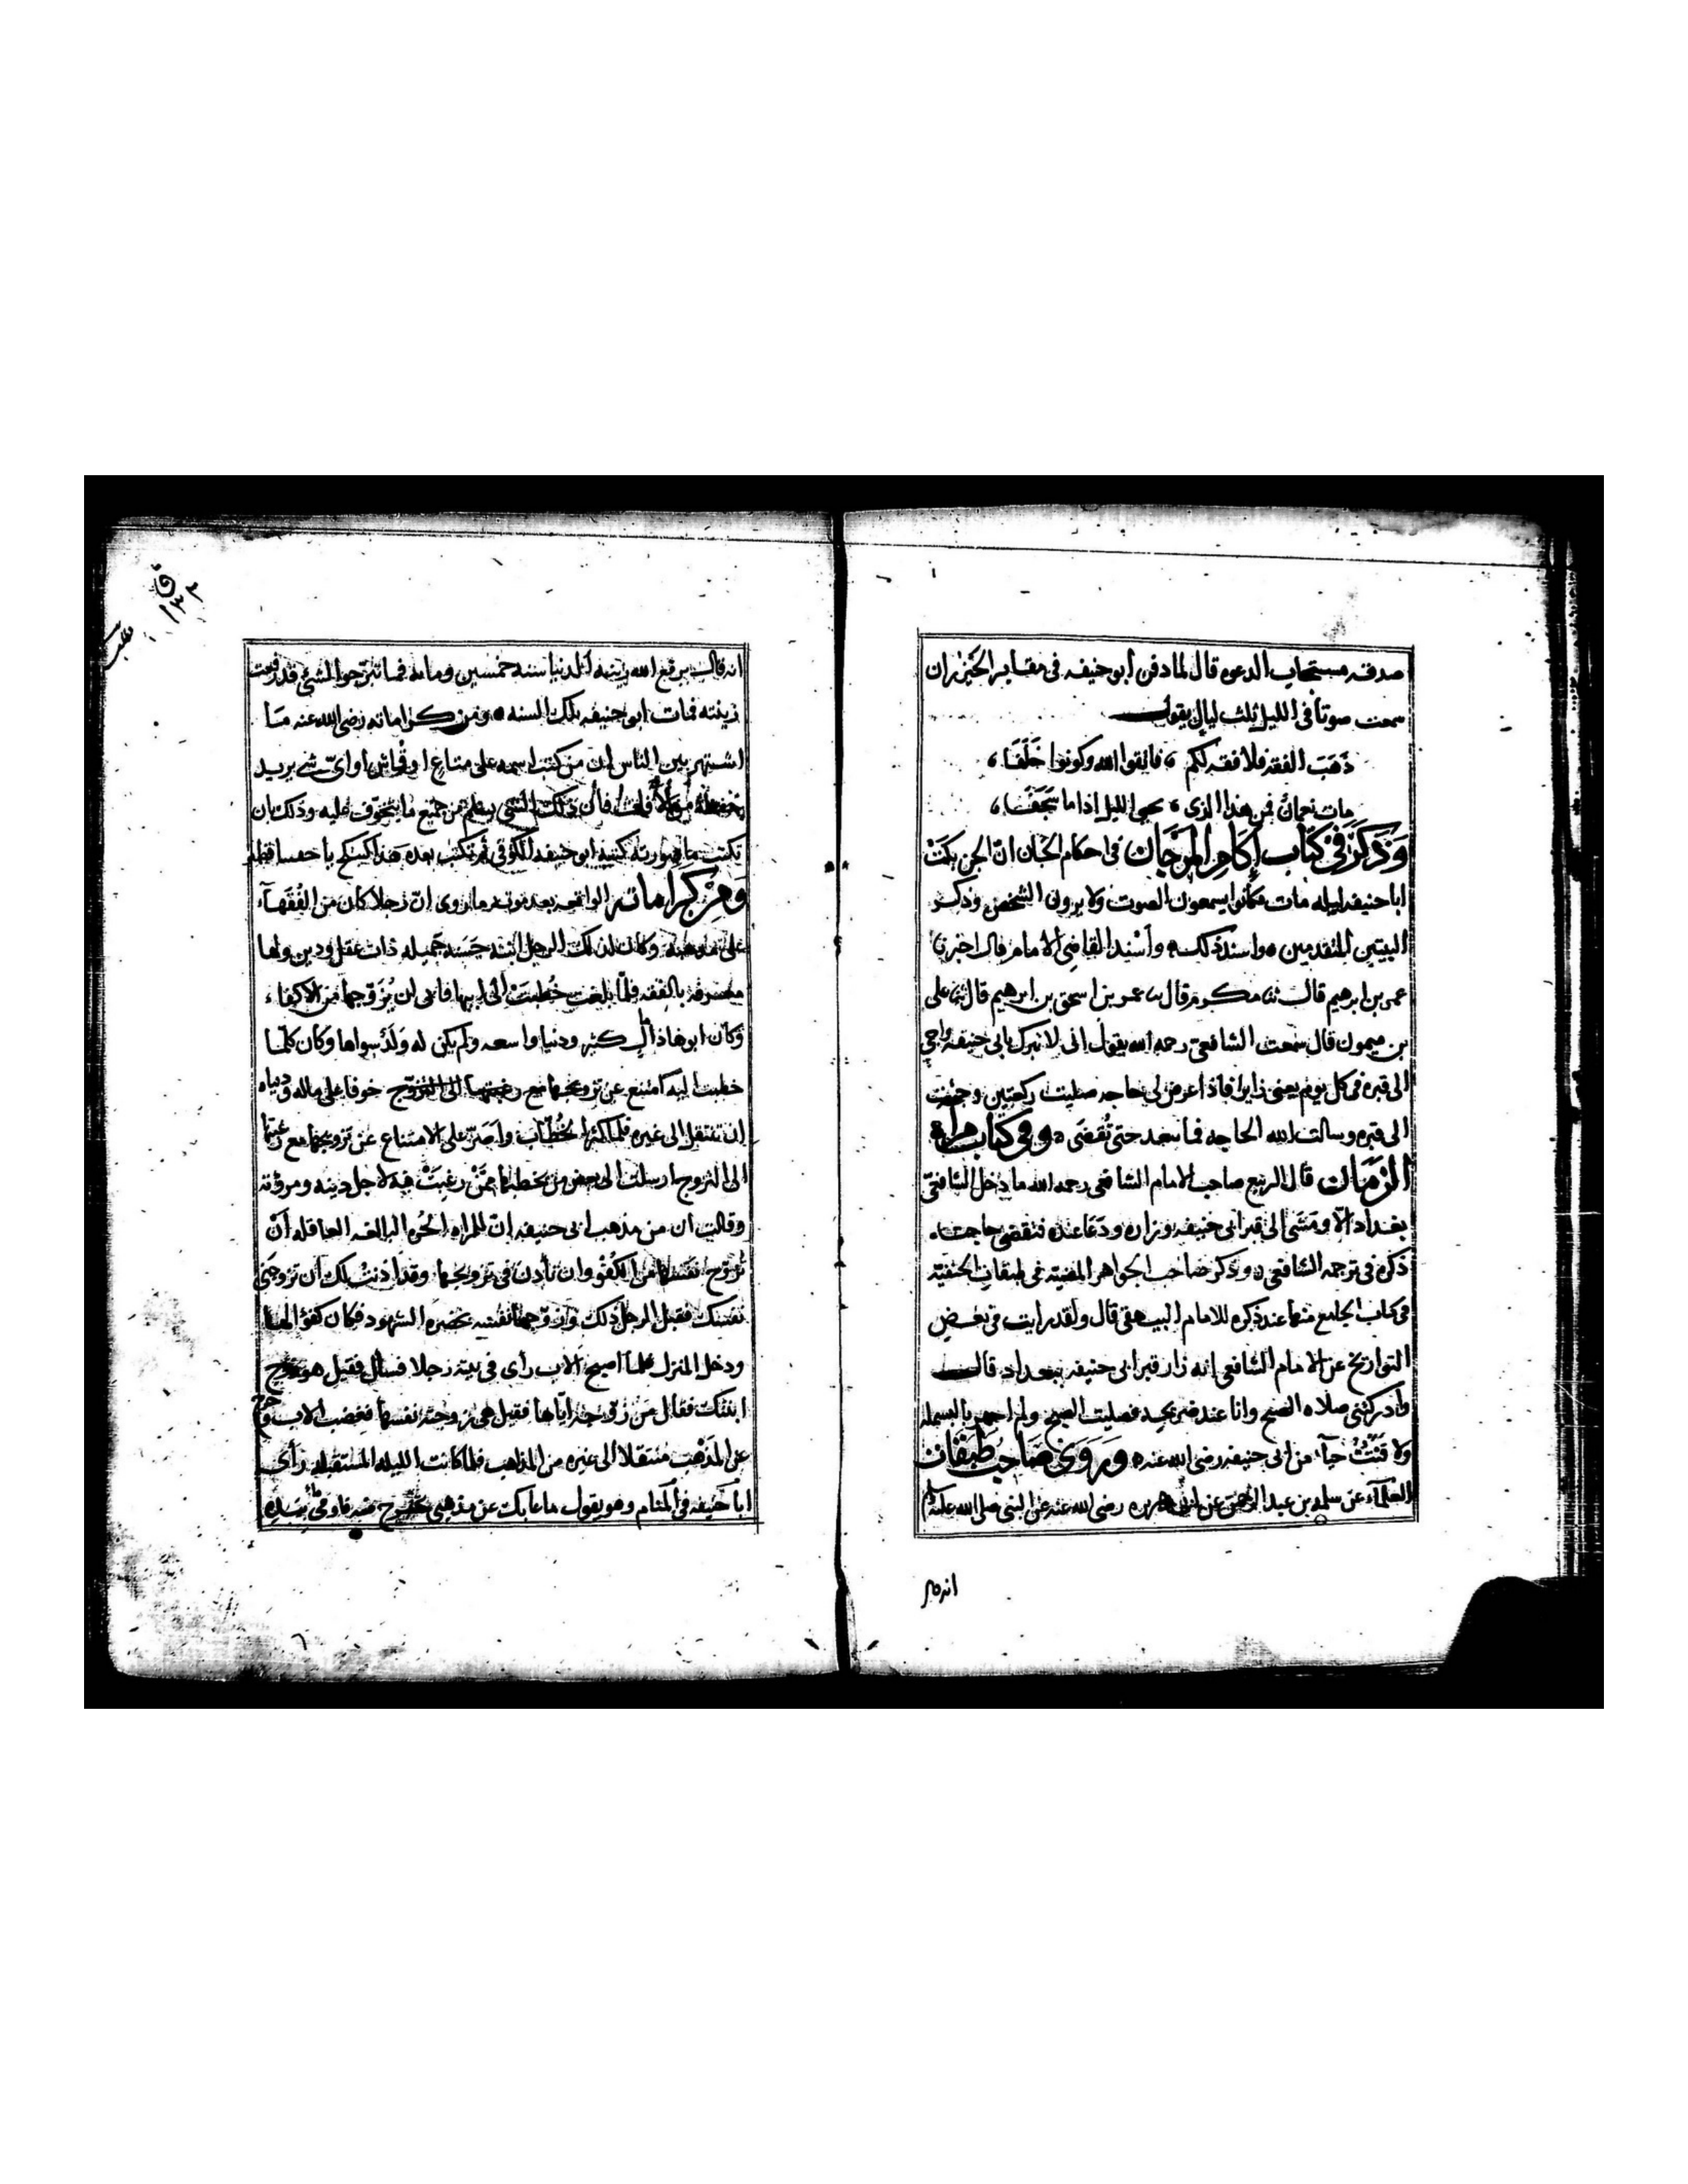 صدقه مستجاب الدعوه قال لما دفن ابو حنيفه فى مقابر الخيزران
سمعت صوتا فى الليل ثلث ليال يقول
ذَهَبَ الفقه فلا فقه لكم ، فاتقوا الله وكونوا خَلَفَا ،
مات نعمان فمن هذا الذى ، يحيى الليل اذا ما سَجَفَا ،
وَذَكَرَ فى كتاب اكام المرجان فى احكام الجان انّ الجن بكت
ابا حنيفه ليله مات فكانوا يسمعون الصوت ولا يرون الشخص وذكر
البيتين المتقدمين واسند ذلك وأسند القاضى الامام قال اخبرنا
عمر بن ابرهيم قال ثنا مكرم قال ثنا عمر بن اسحق بن ابرهيم قال ثنا على
بن ميمون قال سمعت الشافعى رحمه الله يقول انى لاتبرك بابى حنيفه واجى
الى قبره فى كل يوم يعنى زايرا فاذا عرض لى حاجه صليت ركعتين وجئت
الى قبره وسالت الله الحاجه فما تبعد حتى تُقضَى وفى كتاب مراة
الزمان قال الربيع صاحب الامام الشافعى رحمه الله ما دخل الشافعىّ
بغداد الا ومَشَى الى قبر ابى حنيفه وزاره ودَعَا عنده فتقضى حاجته
ذكره فى ترجمه الشافعى وذكر صاحب الجواهر المضيّه فى طبقات الحنفيّه
فى كتاب الجامع منها عند ذكره للامام البيهقى قال ولقد رايت فى بعض
التواريخ عن الامام الشافعى انه زار قبر ابى حنيفه ببغداد قال
وادركتنى صلاه الصبح وانا عند ضريحه فصليت الصبح ولم اجهر بالبسمله
ولا قَنَتُّ حيآء من ابى حنيفه رضى الله عنه وَرَوَى صَاحِبُ طَبَقَات
العلمآء عن سلمه بن عبد الرحمن عن ابى هريره رضى الله عنه عن النبى صلى الله عليه
انه قال
١٣٣
مطلب
انه قال يرفع الله زينه الدنيا سنه خمسين ومايه فما تبرّحوا المشى قد رفعت
زينته فمات ابو حنيفه تلك السنه ومن كراماته رضى الله عنه مَا
اشتهر بين الناس ان من كتب اسمه على متاع او قماش او اىّ شى يريد
حفظه من فان ذلك الشى يسلم من جميع ما يتخوّف عليه وذلك بان
تكتب ما صورته كنيه ابو حنيفه الكوفى ثم تكتب بعده
وَمِنْ كرَاماته الواقعه بعد موته ما روى انّ رجلا كان من الفُقَهَآء
على مذهبه وكان لذلك الرجل ابنة حَسَنه جَميله ذات عقل ودين ولها
معرفة بالفقه فلمّا بلغت خُطبَتْ الى ابيها فابى ان يُزَوّجها من الاكفاء
وكان ابوها ذا مال كثير ودنيا واسعه ولم يكن له وَلَدٌ سواها وكان كلّما
خطبت اليه امتنع عن تزويجها مع رغبتها الى التزوّج خوفا على ماله ودنياه
ان تنتقل الى غيره فلما كثر الخُطّاب وأصَرّ على الامتناع عن تزويجها مع رغبتها
الى التزوج ارسلت الى بعض من يخطبها ممّنْ رغبَتْ فيه لاجل دينه ومروته
وقالت ان من مذهب ابى حنيفه انّ للمراه الحُره البالغه العاقله أنْ
تُزوّج نفسها من الكُفُؤ وان تأذن فى تزويجها وقد اذنتُ لك ان تزوجنى
نفسك فقبل الرجل ذلك وَزوّجها لنفسه بحَضرَه الشهود فكان كفؤ الها
ودخل المنزل فلما اصبح الاب رأى فى بيته رجلا فسأل فقيل هو زوج
ابنتك فقال من زوّجه ايّاها فقيل هى زوجته نفسها فغضب الاب وخرج
عن المذهب مُنتقلا الى غيره من المذاهب فلما كانت الليله المستقبله رأى
ابا حنيفه فى المنام وهو يقول ما عابك عن مذهبى وفى يده